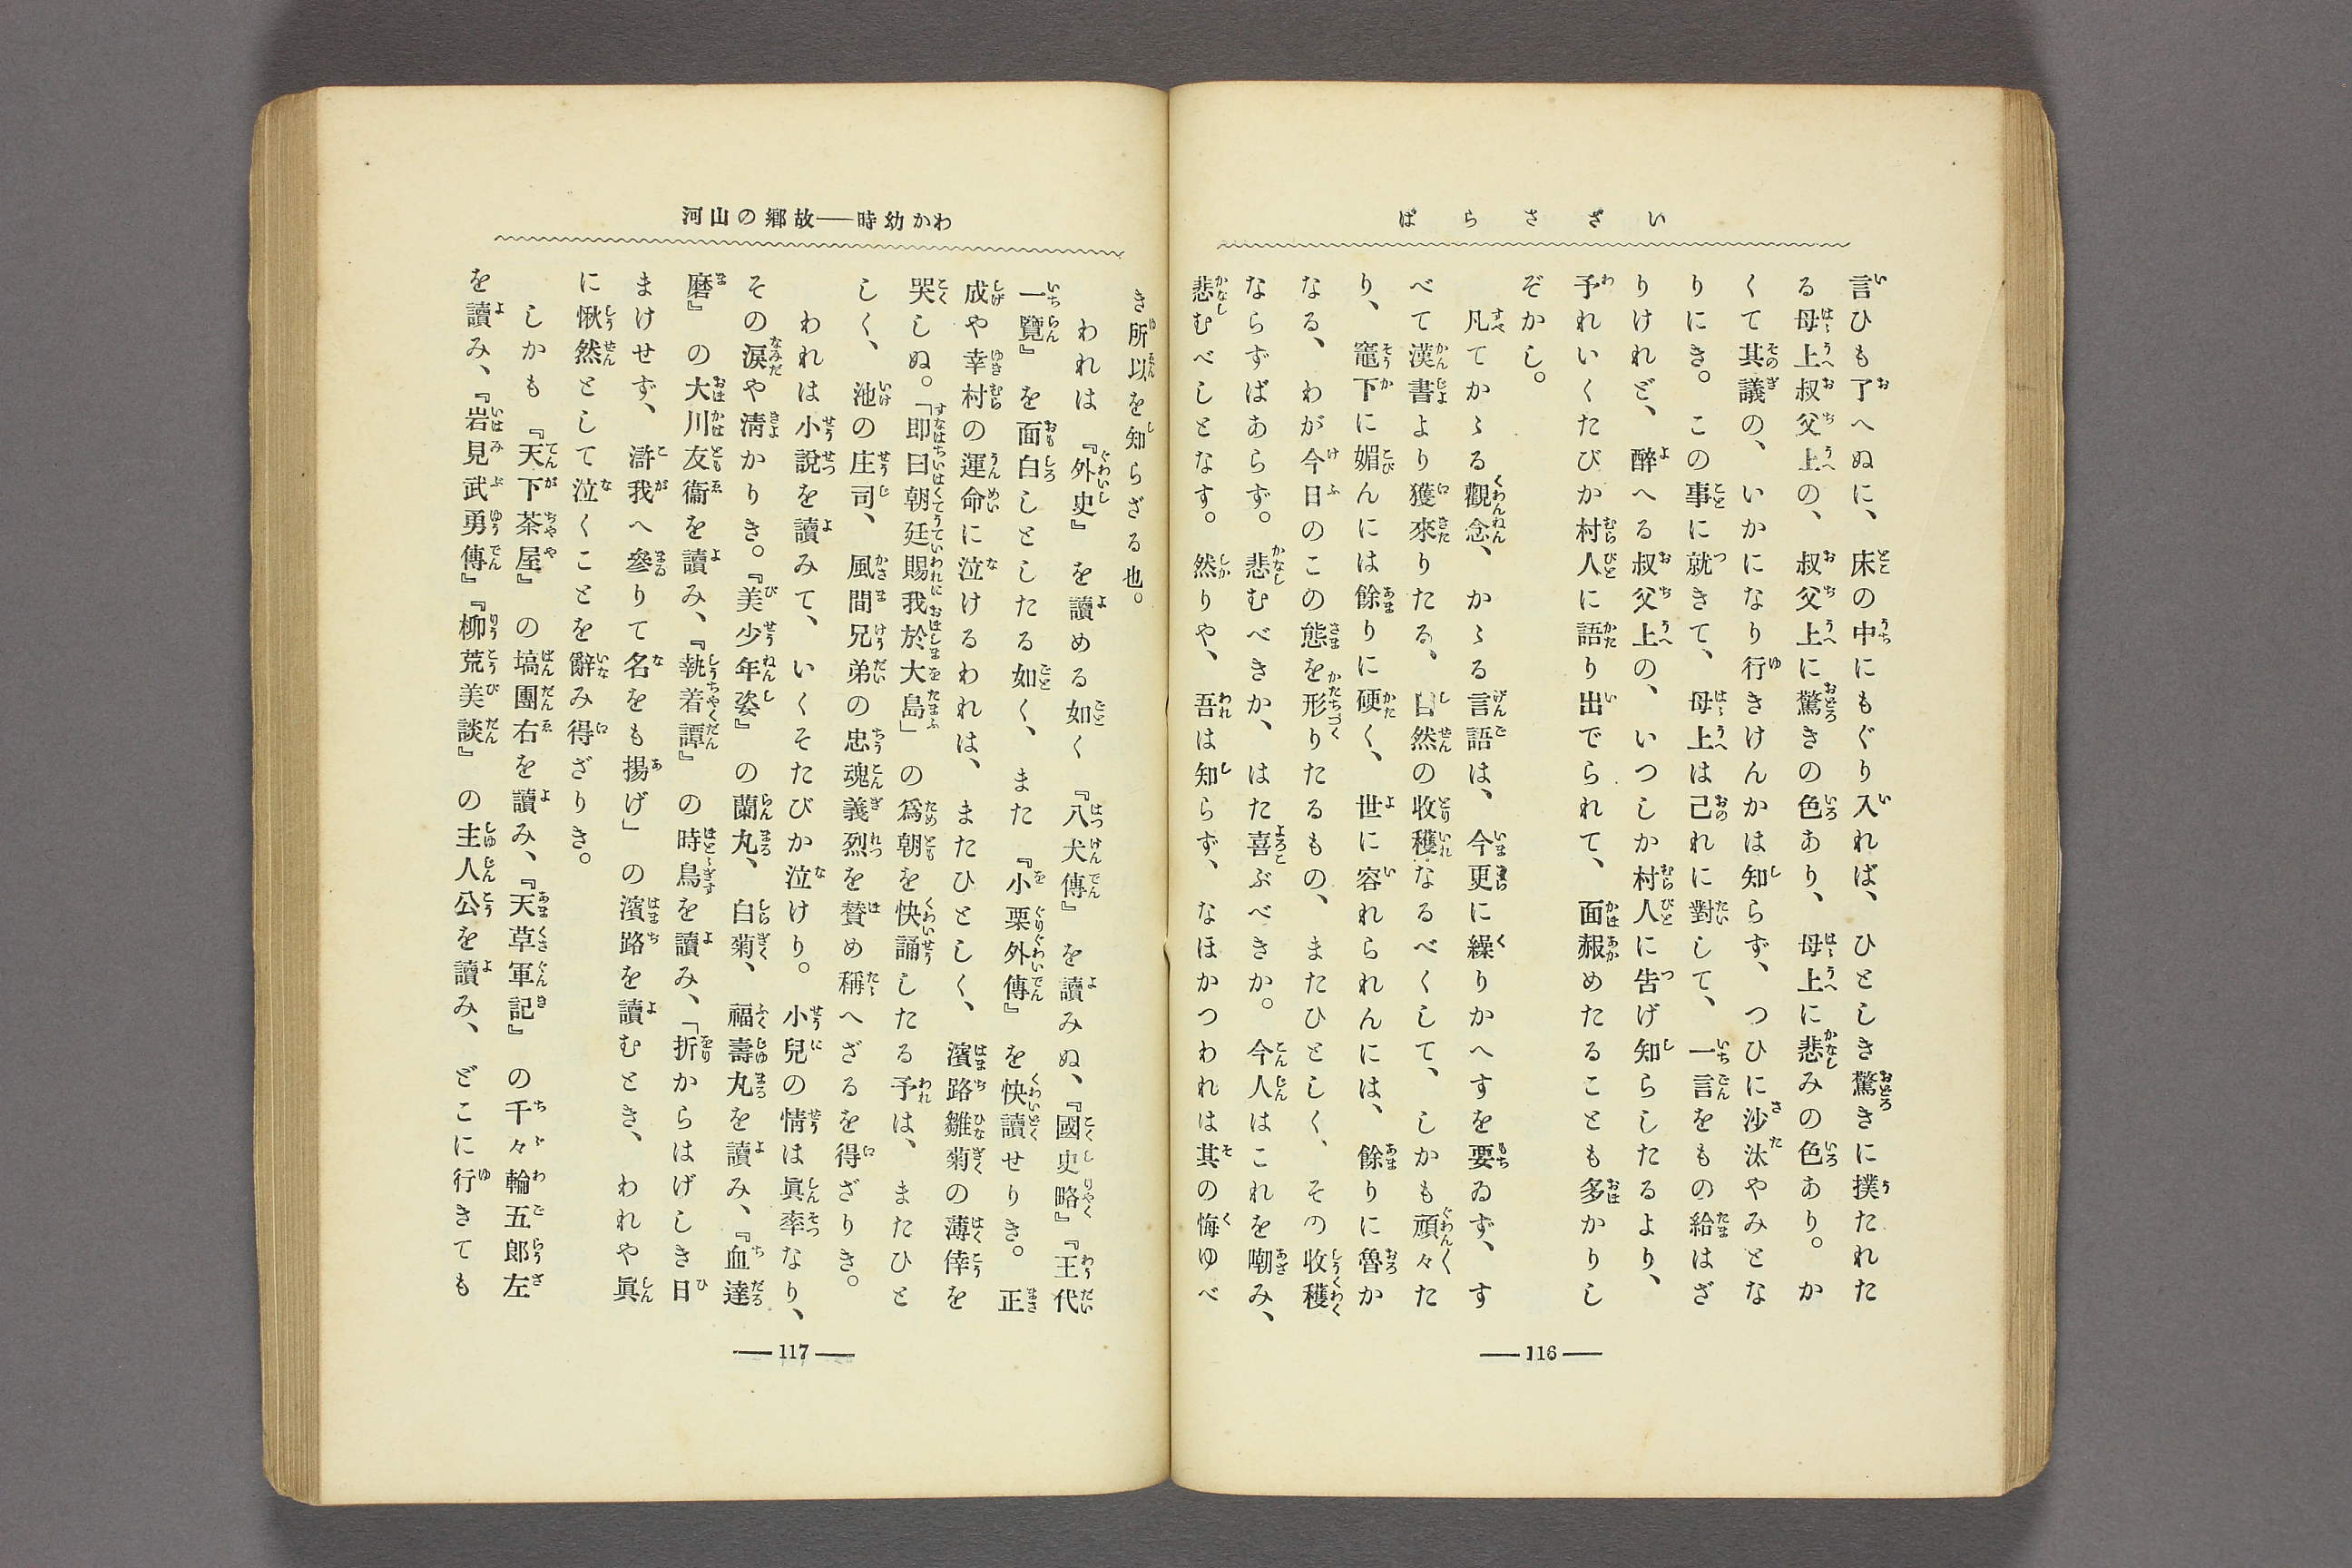 いざさらば
言ひも了へぬに、床の中にもぐり入れば、ひとしき驚きに撲たれた
る母上叔父上の、叔父上に驚きの色あり、母上に悲みの色あり。か
くて其議の、いかになり行きけんかは知らず、つひに沙汰やみとな
りにき。この事に就きて、母上は己れに對して、一言をもの給はざ
りけれど、醉へる叔父上の、いつしか村人に告げ知らしたるより、
予れいくたびか村人に語り出でられて、面赧めたることも多かりし
ぞかし。
凡てかゝる觀念、かゝる言語は、今更に繰りかへすを要ゐず、す
べて漢書より獲來りたる、自然の收穫なるべくして、しかも頑々た
り、竈下に媚んには餘りに硬く、世に容れられんには、餘りに魯か
なる、わが今日のこの態を形りたるもの、またひとしく、その收穫
ならずばあらず。悲むべきか、はた喜ぶべきか。今人はこれを嘲み、
悲むべしとなす。然りや、吾は知らず、なほかつわれは其の悔ゆべ
― 116 ―
わか幼時――故郷の山河
き所以を知らざる也。
われは『外史』を讀める如く『八犬傳』を讀みぬ、『國史略』『王代
一覽』を面白しとしたる如く、また『小栗外傳』を快讀せりき。正
成や幸村の運命に泣けるわれは、またひとしく、濱路雛菊の薄倖を
哭しぬ。「即曰朝廷賜我於大島」の爲朝を快誦したる予は、またひと
しく、池の庄司、風間兄弟の忠魂義烈を賛め稱へざるを得ざりき。
われは小説を讀みて、いくそたびか泣けり。小兒の情は眞率なり、
その涙や淸かりき。『美少年姿』の蘭丸、白菊、福壽丸を讀み、『血達
磨』の大川友衞を讀み、『執着譚』の時鳥を讀み、「折からはげしき日
まけせず、滸我へ參りて名をも揚げ」の濱路を讀むとき、われや眞
に愀然として泣くことを辭み得ざりき。
しかも『天下茶屋』の塙團右を讀み、『天草軍記』の千々輪五郎左
を讀み、『岩見武勇傳』『柳荒美談』の主人公を讀み、どこに行きても
― 117 ―